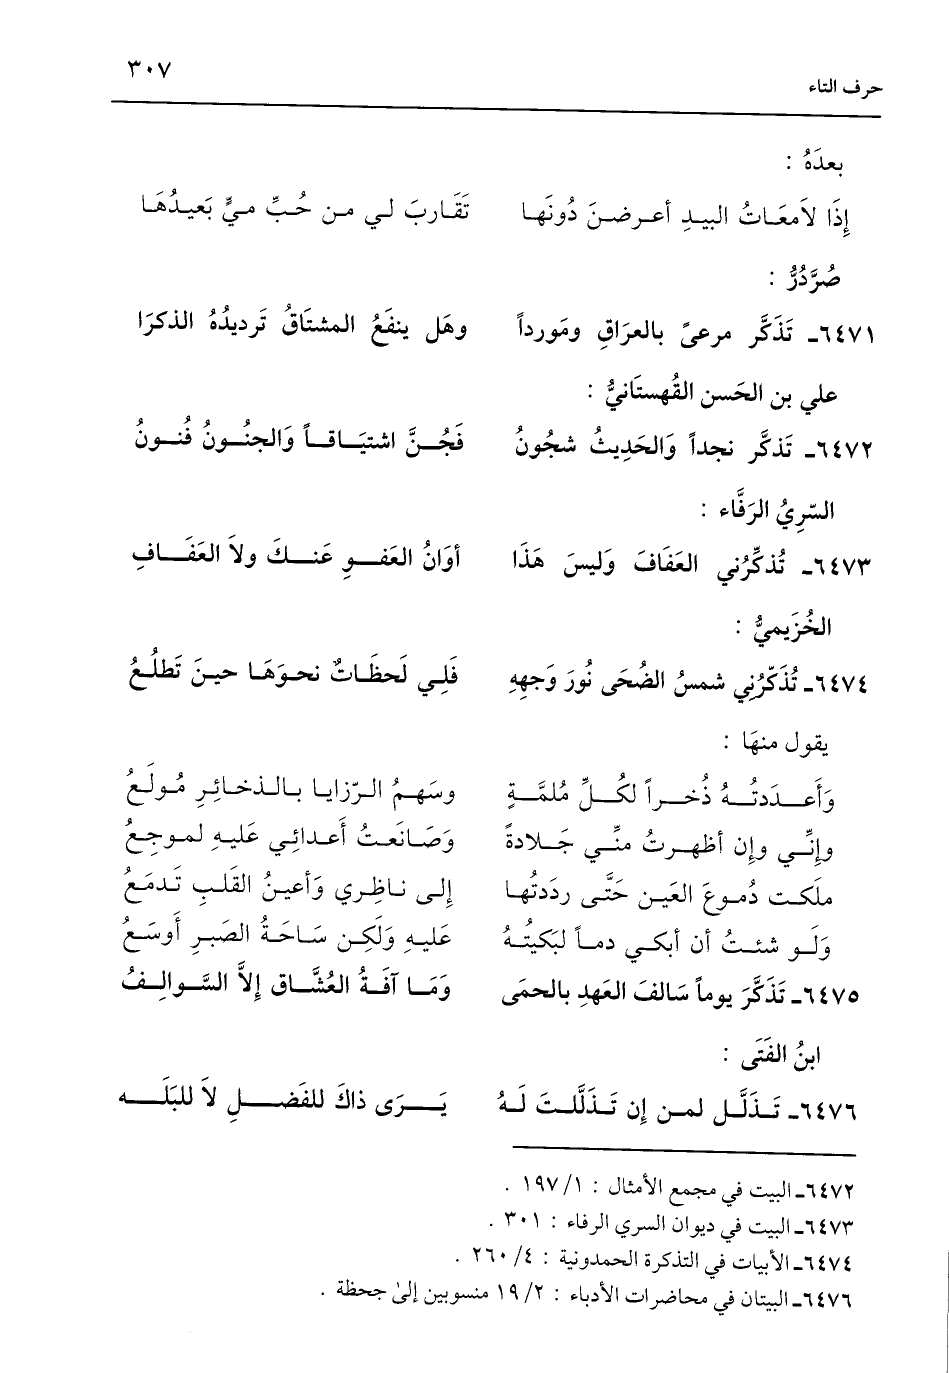 حرف التاء ٣٠٧
بعدَهُ :
إِذَا لاَمعَاتُ البيدِ أعرضنَ دُونَها تَقَاربَ لي من حُبِّ ميٍّ بَعيدُهَا
صُرَّدُرُّ :
٦٤٧١ـ تَذَكَّر مرعىً بالعرَاقِ ومَورداً وهَل ينفَعُ المشتَاقُ تَرديدُهُ الذكرَا
علي بن الحَسن القُهستَانيُّ :
٦٤٧٢ـ تَذكَّر نجداً وَالحَدِيثُ شجُونُ فَجُنَّ اشتيَاقاً وَالجنُونُ فُنونُ
السّرِيُ الرَفَّاء :
٦٤٧٣ـ تُذكِّرُني العَفافَ وَليسَ هَذَا أوَانُ العَفوِ عَنكَ ولاَ العَفَافِ
الخُزَيميُّ :
٦٤٧٤ـ تُذَكّرُنِي شمسُ الضُحَى نُورَ وَجهِهِ فَلِي لَحظَاتٌ نحوَهَا حينَ تَطلُعُ
يقول منهَا :
وَأَعدَدتُهُ ذُخراً لكُلِّ مُلمَّةٍ وسَهمُ الرّزايا بالذخائِرِ مُولَعُ
وإنِّي وإن أظهرتُ منِّي جَلادةً وَصَانَعتُ أَعدائِي عَليهِ لموجعُ
ملَكت دُموعَ العَين حَتَّى ردَدتُها إلى ناظِري وَأعينُ القَلبِ تَدمَعُ
وَلَو شئتُ أن أبكي دماً لبَكيتُهُ عَليهِ وَلَكِن سَاحَةُ الصَبرِ أَوسَعُ
٦٤٧٥ـ تَذَكَّرَ يوماً سَالفَ العَهدِ بالحمَى وَمَا آفَةُ العُشَّاق إلاَّ السَّوالِفُ
ابنُ الفَتَى :
٦٤٧٦ـ تَذَلَّل لمن إن تَذَلَّلتَ لَهُ يَرَى ذاكَ للفَضلِ لاَ للبَلَه
٦٤٧٢ـ البيت في مجمع الأمثال : ١/ ١٩٧ .
٦٤٧٣ـ البيت في ديوان السري الرفاء : ٣٠١ .
٦٤٧٤ـ الأبيات في التذكرة الحمدونية : ٤/ ٢٦٠ .
٦٤٧٦ـ البيتان في محاضرات الأدباء : ٢/ ١٩ منسوبين إلىٰ جحظة .